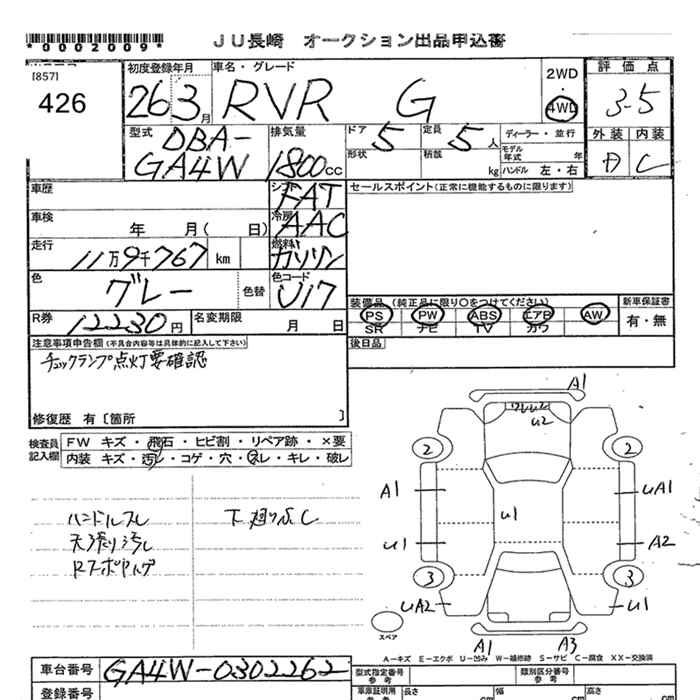 *0002009*
JU長崎 オークション出品申込書
[857]
426
初度登録年月
26 3月
車名・グレード
RVR G
2WD
4WD
評価点
3-5
外装 内装
A C
型式
DBA-
GA4W
排気量
1800cc
ドア 5
定員 5人
形状
積載 kg
ディーラー・並行
モデル年式 年
ハンドル 左・右
車歴
シフト FAT
車検 年 月( 日)
冷房 AAC
走行 11万9千767 km
燃料 ガソリン
色 グレー
色替
色コード U17
R券 12230円
名変期限 月 日
セールスポイント(正常に機能するものに限ります)
装備品 (純正品に限り〇をつけてください)
PS PW ABS エアB AW
SR ナビ TV カワ
新車保証書
有・無
後日品
注意事項申告欄(不具合内容等は具体的に記入して下さい)
チェックランプ点灯要確認
修復歴 有〔箇所 〕
検査員記入欄
FW キズ・飛石・ヒビ割・リペア跡・×要
内装 キズ・汚レ・コゲ・穴・スレ・キレ・破レ
ハンドルスレ
天張り汚レ
下廻りさビ
A1
U2
2 2
A1 UA1
U1
U1 A2
3 3
UA2 U1
スペア
A1 A3
A-キズ E-エクボ U-凹み W-補修跡 S-サビ C-腐食 XX-交換済
車台番号 GA4W-0302262
登録番号
型式指定番号
参考
類別区分番号
参考
車庫証明用
参考
長さ cm 幅 cm 高さ cm